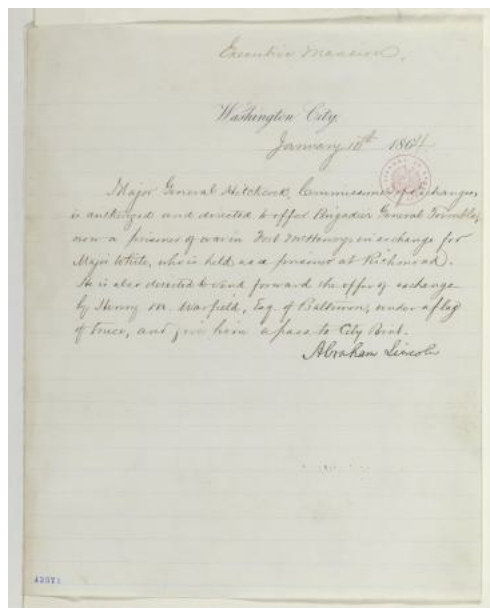 Executive Mansion,
Washington City,
January 1864
Major General Hitchcock, Commissioner of Exchanges,
is authorized and directed to offer Brigadier General Trimble,
now a prisoner of war in Fort McHenry, in exchange for
Major White, who is held as a prisoner at Richmond.
He is also directed to send forward the offer of exchange
by Henry M. Warfield, Esq. of Baltimore, under a flag
of truce, and give him a pass to City Point.
Abraham Lincoln